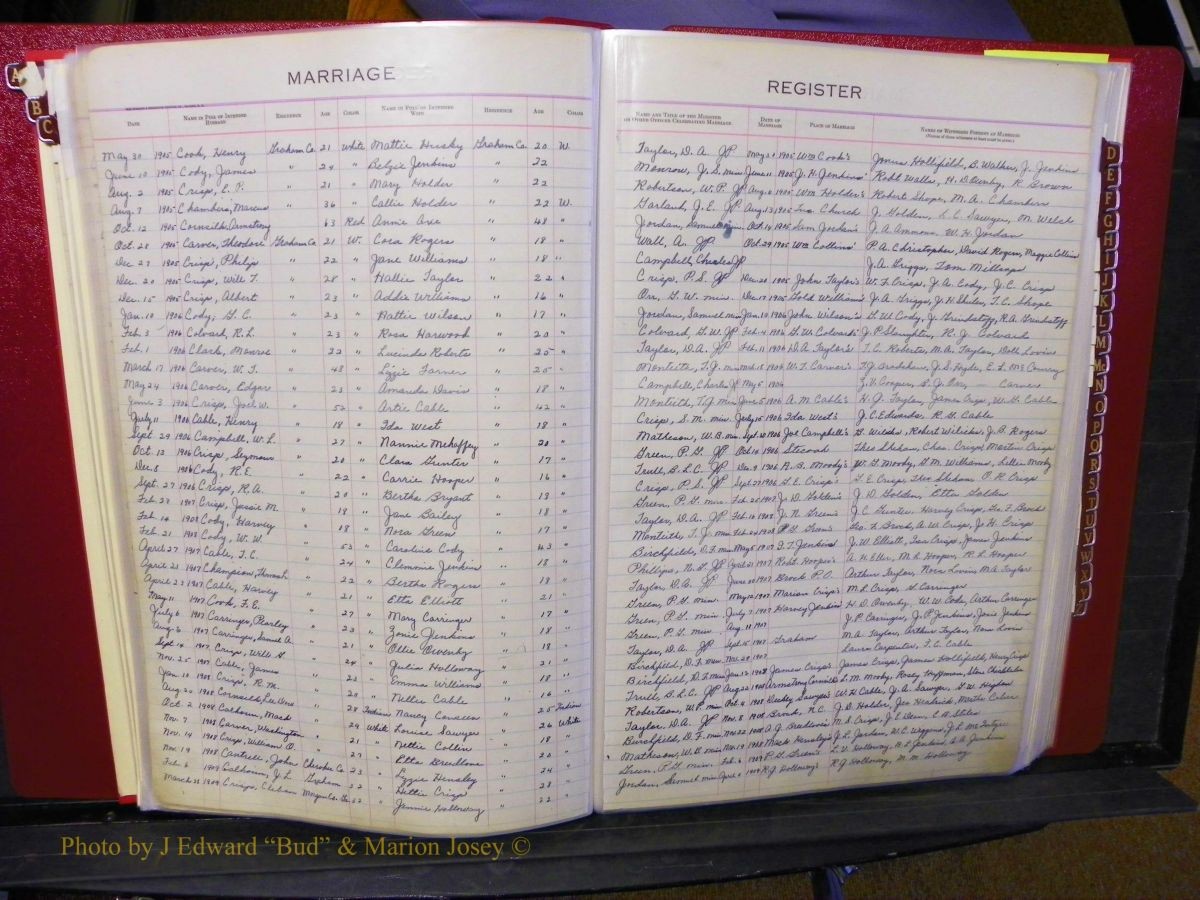 MARRIAGE
DATE NAME IN FULL OF INTENDED HUSBAND RESIDENCE AGE COLOR NAME IN FULL OF INTENDED WIFE RESIDENCE AGE COLOR
May 30 1905 Cook, Henry Graham Co. 21 White Mattie Husky Graham Co. 20 W.
June 10 1905 Cody, James " 24 " Belzie Jenkins " 22
Aug. 2 1905 Crisp, E. P. " 21 " Mary Holder " 22
Aug. 7 1905 Chambers, Marcus " 36 " Callie Holder " 22 W.
Oct. 12 1905 Cornsilk, Armstrong 63 Red Annie 48 "
Oct. 28 1905 Carver, Theodore Graham Co. 21 W. Cora Rogers " 18 "
Dec 23 1905 Crisp, Philip " 22 " Jane Williams " 18 "
Dec. 20 1905 Crisp, Will T. " 28 " Hallie Taylor " 22 "
Dec. 15 1905 Crisp, Albert " 23 " Addie Williams " 16 "
Jan. 10 1906 Cody, G. C. " 23 " Hattie Wilson " 17 "
Feb. 3 1906 Colvard, R. L. 23 " Rosa Harwood " 20 "
Feb. 1 1906 Clark, Monroe " 22 " Lucinda Roberts " 25 "
March 17 1906 Carver, W. T. " 48 " Lizzie Farner " 25 "
May 24 1906 Carver, Edgar " 23 " Amanda Davis " 18 "
June 3 1906 Crisp, Joel W. " 52 " Artie Cable " 42 "
July 11 1906 Cable, Henry " 18 " Ida West " 18 "
Sept. 29 1906 Campbell, W. L. " 27 " Nannie Mehaffey " 20 "
Oct. 13 1906 Crisp, Seymour " 20 " Clara Gunter " 17 "
Dec. 8 1906 Cody, R. E. 22 " Carrie Hooper " 16 "
Sept. 27 1906 Crisp, R. A. " 20 " Bertha Bryant " 18 "
Feb 23 1907 Crisp, Jessie M. " 18 " Jane Bailey " 18 "
Feb. 14 1908 Cody, Harvey " 18 " Nora Green " 17 "
Feb 21 1908 Cody, W. W. 53 " Caroline Cody " 43 "
April 27 1907 Cable, T. C. " 24 " Clemmie Jenkins " 18 "
April 21 1907 Champion, " 22 " Bertha Rogers " 18 "
April 23 1907 Cable, Harvey " 21 " Etta Elliott " 21 "
May 11 1907 Cook, F. E. " 27 " Mary Carringer " 17 "
July 6 1907 Carringer, Parley " 23 " Zonie Jenkins " 18 "
Aug. 6 1907 Carringer, Samuel A. " 21 " Ollie Owenby " 18 "
Sept. 14 1907 Crisp, Will G. " 24 " Julia Holloway " 21 "
Nov. 25 1907 Cable, James " 22 " Emma Williams " 18 "
Jan. 10 1908 Crisp, R. M. " 20 " Nettie Cable " 16 "
Aug. 20 1908 Cornsilk, 28 Indian Nancy 25 Indian
Oct. 2 1908 Calhoun, Mack " 29 White Louise Sawyer " 26 White
Nov. 7 1908 Carver, Washington " 21 " Nettie Collins " 18 "
Nov. 14 1908 Crisp, William O. " 27 " Etta " 20 "
Nov. 19 1908 Cantrell, John Cherokee Co. 23 " Lizzie Hensley " 24 "
Feb. 6 1909 Calhoun, J. L. Graham 32 " Hettie Crisp " 28 "
March 28 1909 Crisp, 32 " Jennie Holloway " 22 "
REGISTER
NAME AND TITLE OF THE MINISTER OR OTHER OFFICER CELEBRATING MARRIAGE DATE OF MARRIAGE PLACE OF MARRIAGE NAMES OF WITNESSES PRESENT AT MARRIAGE
Taylor, D. A. JP May 30 1905 Wm Cook's Jones Hollifield, B. Walker, J. Jenkins
Monroe, J. S. min June 11 1905 J. H. Jenkins' Robt Walls, H. D. Owenby, R. Brown
Robertson, W. P. JP Aug. 2 1905 Wm Holder's Robert Shope, M. A. Chambers
Garland, J. E. JP Aug. 13 1905 Church J. Golden, L. C. Sawyer, M. Welch
Jordan, Samuel min Oct 14 1905 Sam Jordan's J. A. Ammons, W. H. Jordan
Wall, A. JP Oct 29 1905 Wm Collins' P. A. Christopher, David Rogers, Maggie Collins
Campbell, Charles JP J. A. Griggs, Tom Millsaps
Crisp, P. S. JP Dec. 20 1905 John Taylor's W. F. Crisp, J. A. Cody, J. C. Crisp
Orr, G. W. min. Dec. 17 1905 Williams' J. A. Griggs, J. H. Shuler, T. C. Shope
Jordan, Samuel min Jan. 10 1906 John Wilson's G. W. Cody, J. Grindstaff, R. A. Grindstaff
Colvard, G. W. JP Feb. 4 1906 G. W. Colvard's J. P. Slaughter, R. J. Colvard
Taylor, D. A. JP Feb. 11 1906 D. A. Taylor's T. C. Roberts, M. A. Taylor, Doll Lovin
Monteith, T. J. min W. T. Carver's T. J. Bradshaw, J. S. Hyde, E. L. McCurry
Campbell, Charles JP May 5 1906 Z. V. Cooper, S. J. Orr, — Carver
Monteith, T. J. min June 5 1906 A. M. Cable's H. J. Taylor, James Crisp, W. G. Cable
Crisp, S. M. min. July 15 1906 Ida West's J. C. Edwards, R. G. Cable
Matheson, W. B. min. Sept. 30 1906 Joe Campbell's Robert Wilcher, J. B. Rogers
Green, P. G. JP Oct 14 1906 Stecoah Theo Sleham, Chas. Crisp, Martin Crisp
Trull, B. L. C. JP Dec. 9 1906 A. B. Moody's W. G. Moody, G. M. Williams, Lillie Moody
Crisp, P. S. JP Sept 27 1906 T. E. Crisp's T. E. Crisp, Theo Sleham, P. R. Crisp
Green, P. G. min. Feb. 25 1907 J. D. Golden's J. D. Golden, Etta Golden
Taylor, D. A. JP Feb. 16 1908 J. N. Green's J. C. Gunter, Harvey Crisp, Geo. F. Brock
Monteith, T. J. min Feb 24 1908 P. G. Green's Geo. F. Brock, A. W. Crisp, J. H. Crisp
Birchfield, D. F. min May 5 1907 F. T. Jenkins J. W. Elliott, Ian Crisp, James Jenkins
Phillips, N. G. JP April 21 1907 Robt. Hooper's A. H. Eller, M. L. Hooper, R. L. Hooper
Taylor, D. A. JP June 20 1907 Brock P.O. Arthur Taylor, Nora Lovin, M. A. Taylor
Green, P. G. min. May 12 1907 Marion Crisp's M. L. Crisp, G. Carringer
Green, P. G. min. July 7 1907 Harvey Jenkins H. D. Owenby, W. W. Cody, Arthur Carringer
Green, P. G. min Aug. 11 1907 J. P. Carringer, J. P. Jenkins, Josie Jenkins
Taylor, D. A. JP Sept 15 1907 Graham M. A. Taylor, Arthur Taylor, Nora Lovin
Birchfield, D. F. min Nov. 28 1907 Laura Carpenter, T. C. Cable
Birchfield, D. F. min Jan 12 1908 James Crisp's James Crisp, James Hollifield, Henry Crisp
Trull, B. L. C. JP Aug 22 1908 Armstrong Cornsilk L. M. Moody, Stan Chickalee
Robertson, W. P. min Oct. 4 1908 Sawyer's W. H. Cable, J. A. Sawyer, G. W. Haydon
Taylor, D. A. JP Nov. 8 1908 Brock, N.C. J. D. Holder, Jco Hedrick, Mattie Colvar
Birchfield, D. F. min Nov 22 1908 M. S. Crisp, J. E. Dean, E. W. Stiles
Matheson, W. B. min Nov 19 1908 Mack Hensley's J. L. Jordan, W. C. Wiggins, J. L. McIntyre
Green, P. G. min. Feb. 6 1909 P. G. Green's L. V. Holloway, N. S. Jenkins, S. A. Jenkins
Jordan, Samuel min April 4 1909 R. J. Holloway's R. J. Holloway, M. M. Holloway
A
B
C
D
E
F
G
H
I
J
K
L
M
Mc
N
O
P
Q
R
S
T
U
V
W
Y
Z
Photo by J Edward “Bud” & Marion Josey ©